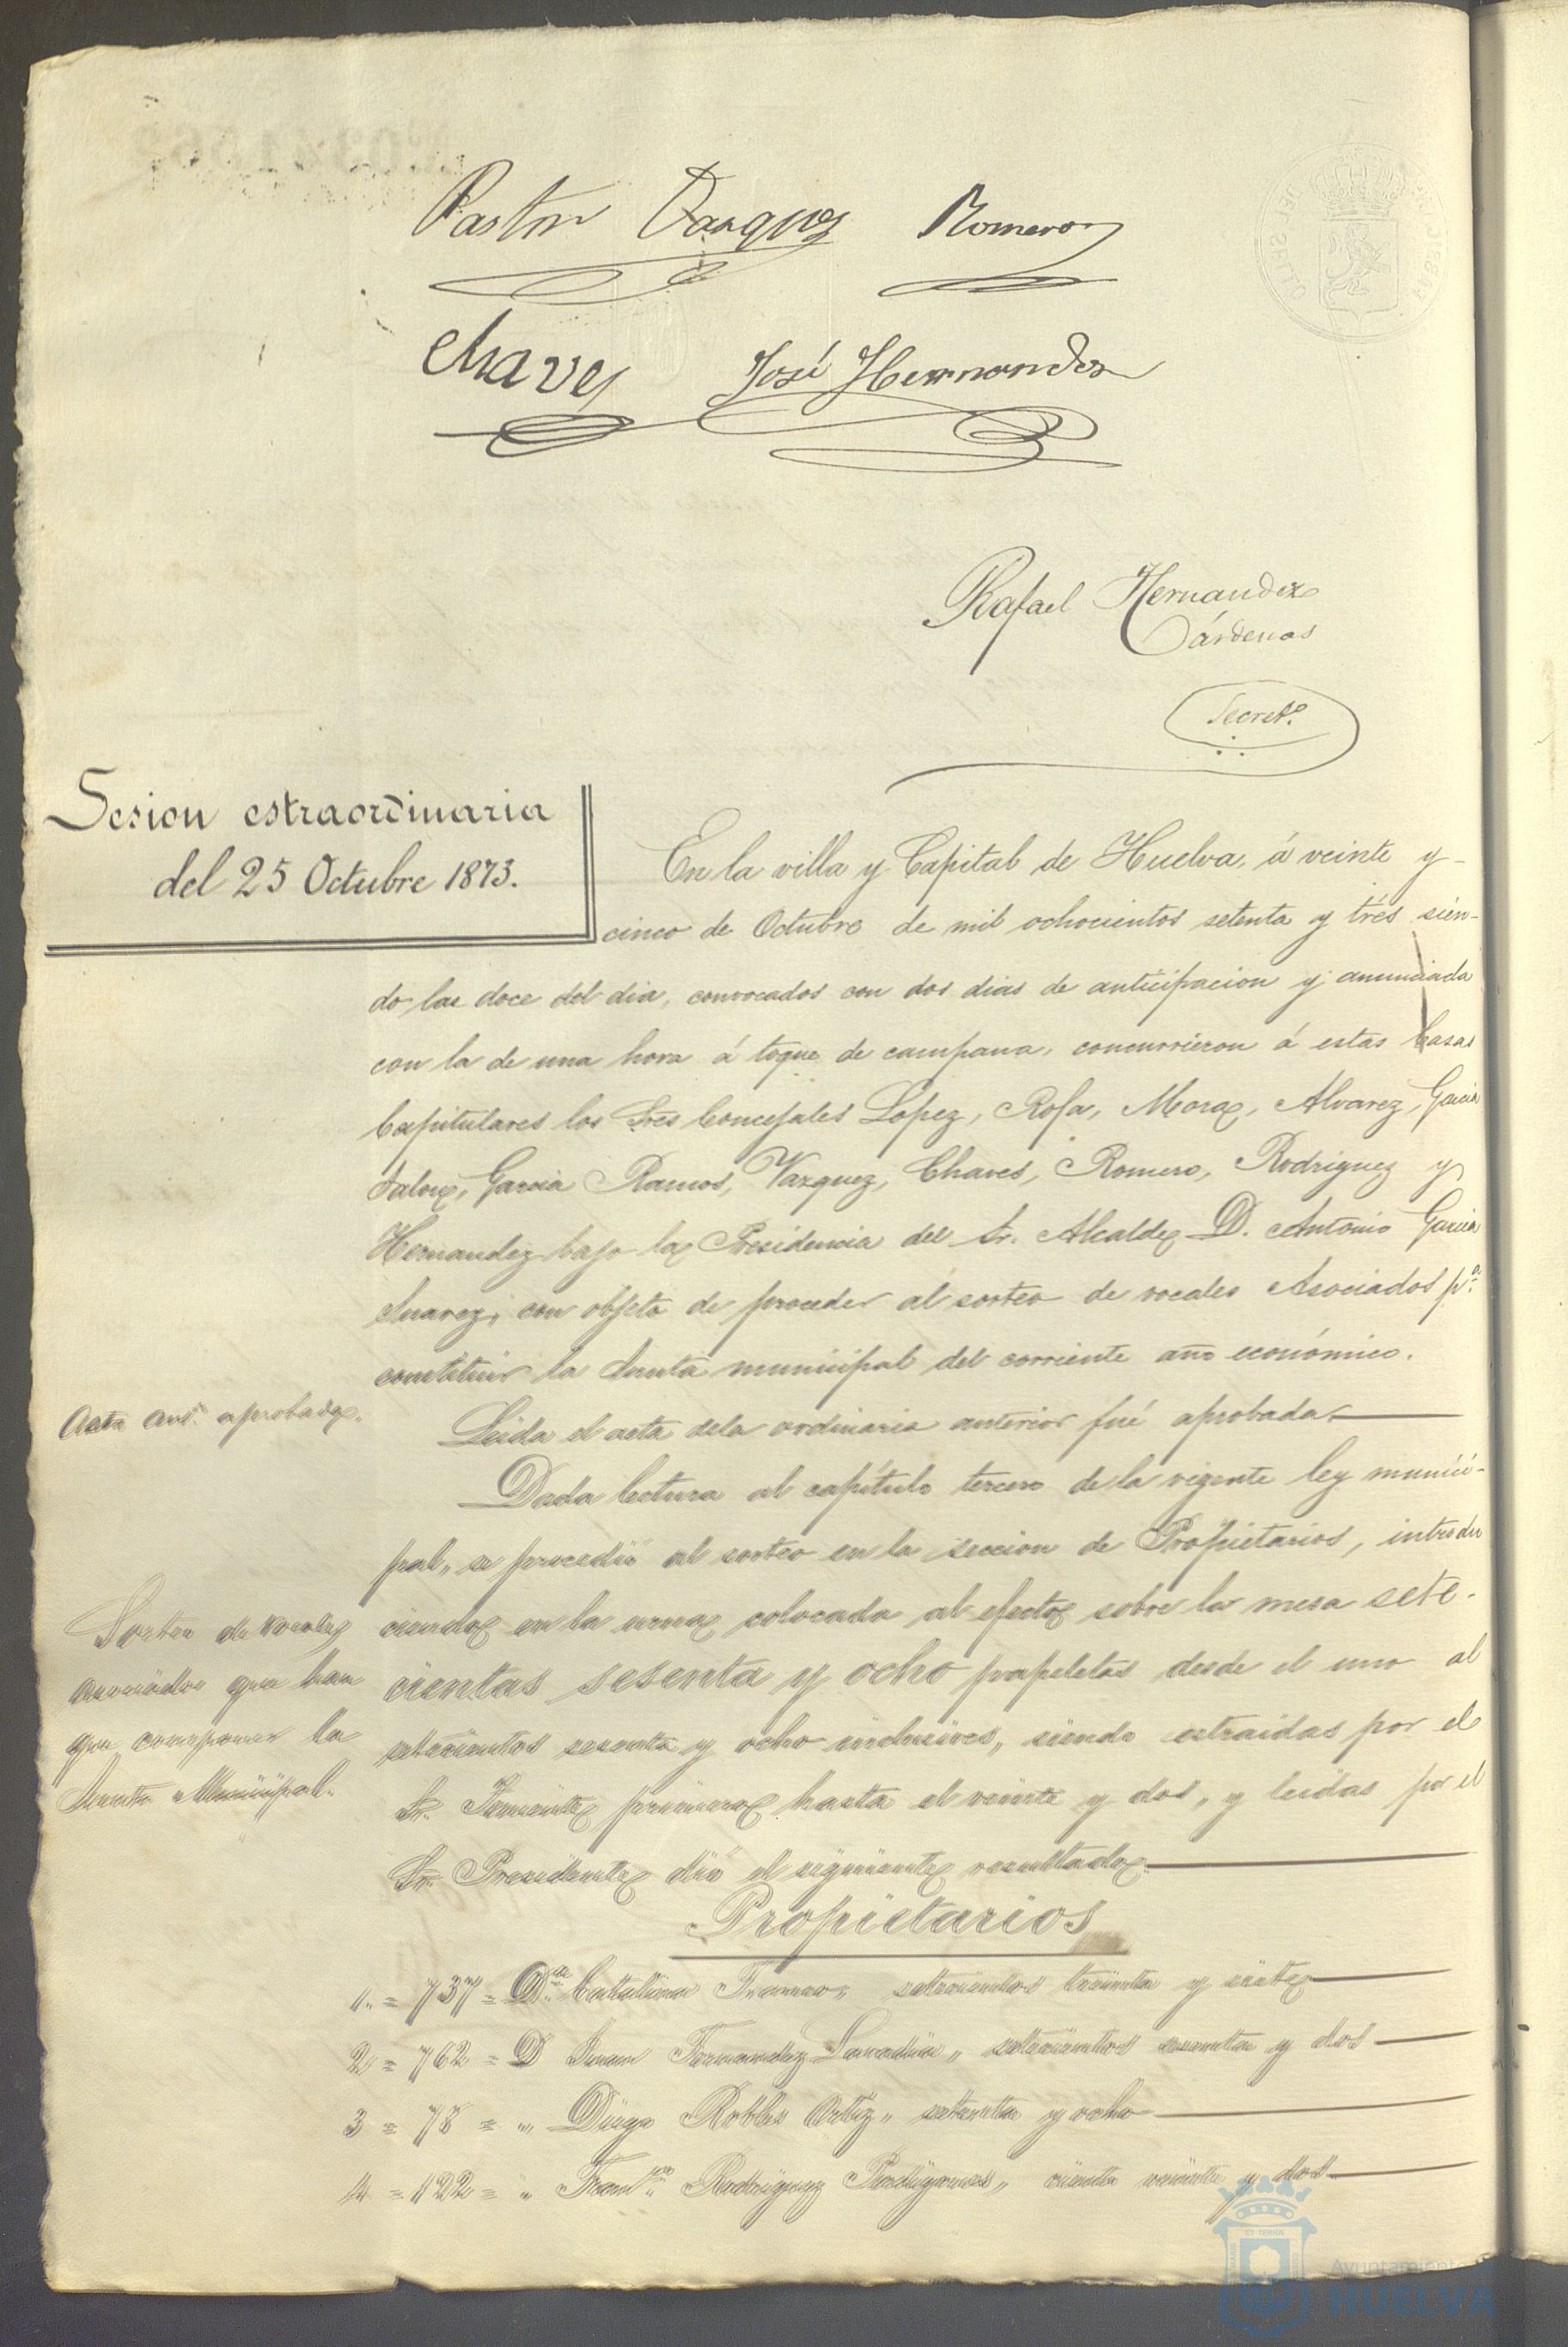 Pastor Vazquez Romero
Chaves José Hernandez
Rafael Hernandez
Cárdenas
Secret.º
Sesion estraordinaria
del 25 Octubre 1873.
En la villa y Capital de Huelva, á veinte y
cinco de Octubre de mil ochocientos setenta y tres sien-
do las doce del dia, convocados con dos dias de anticipacion y anunciada
con la de una hora á toque de campana, concurrieron á estas Casas
Capitulares los Sres Concejales Lopez, Rofa, Mora, Alvarez, Garcia
Jalon, Garcia Ramos, Vazquez, Chaves, Romero, Rodriguez y
Hernandez bajo la Presidencia del Sr. Alcalde D. Antonio Garcia
Suarez, con objeto de proceder al sorteo de vocales Asociados p.ª
constituir la Junta municipal del corriente año económico.
Acta ant.r aprobada.
Leida el acta dela ordinaria anterior fué aprobada
Dada lectura al capítulo tercero de la vigente ley munici-
pal, se procedió al sorteo en la seccion de Propietarios, introdu
ciendo en la urna colocada al efecto sobre la mesa sete-
cientas sesenta y ocho papeletas desde el uno al
setecientos sesenta y ocho inclusives, siendo estraidas por el
Sr. Teniente primero hasta el veinte y dos, y leidas por el
Sr. Presidente dió el siguiente resultado.
Sorteo de vocales
asociados que han
que componer la
Junta Municipal.
Propietarios
1. = 737 = D.ña Catalina Franco, setecientos treinta y siete
2 = 762 = D Juan Fernandez, setecientos sesenta y dos
3 = 78 = " Diego Robles Ortiz, setenta y ocho
4 = 122 = " Fran.co Rodriguez, ciento veinte y dos
Ayuntamiento
HUELVA